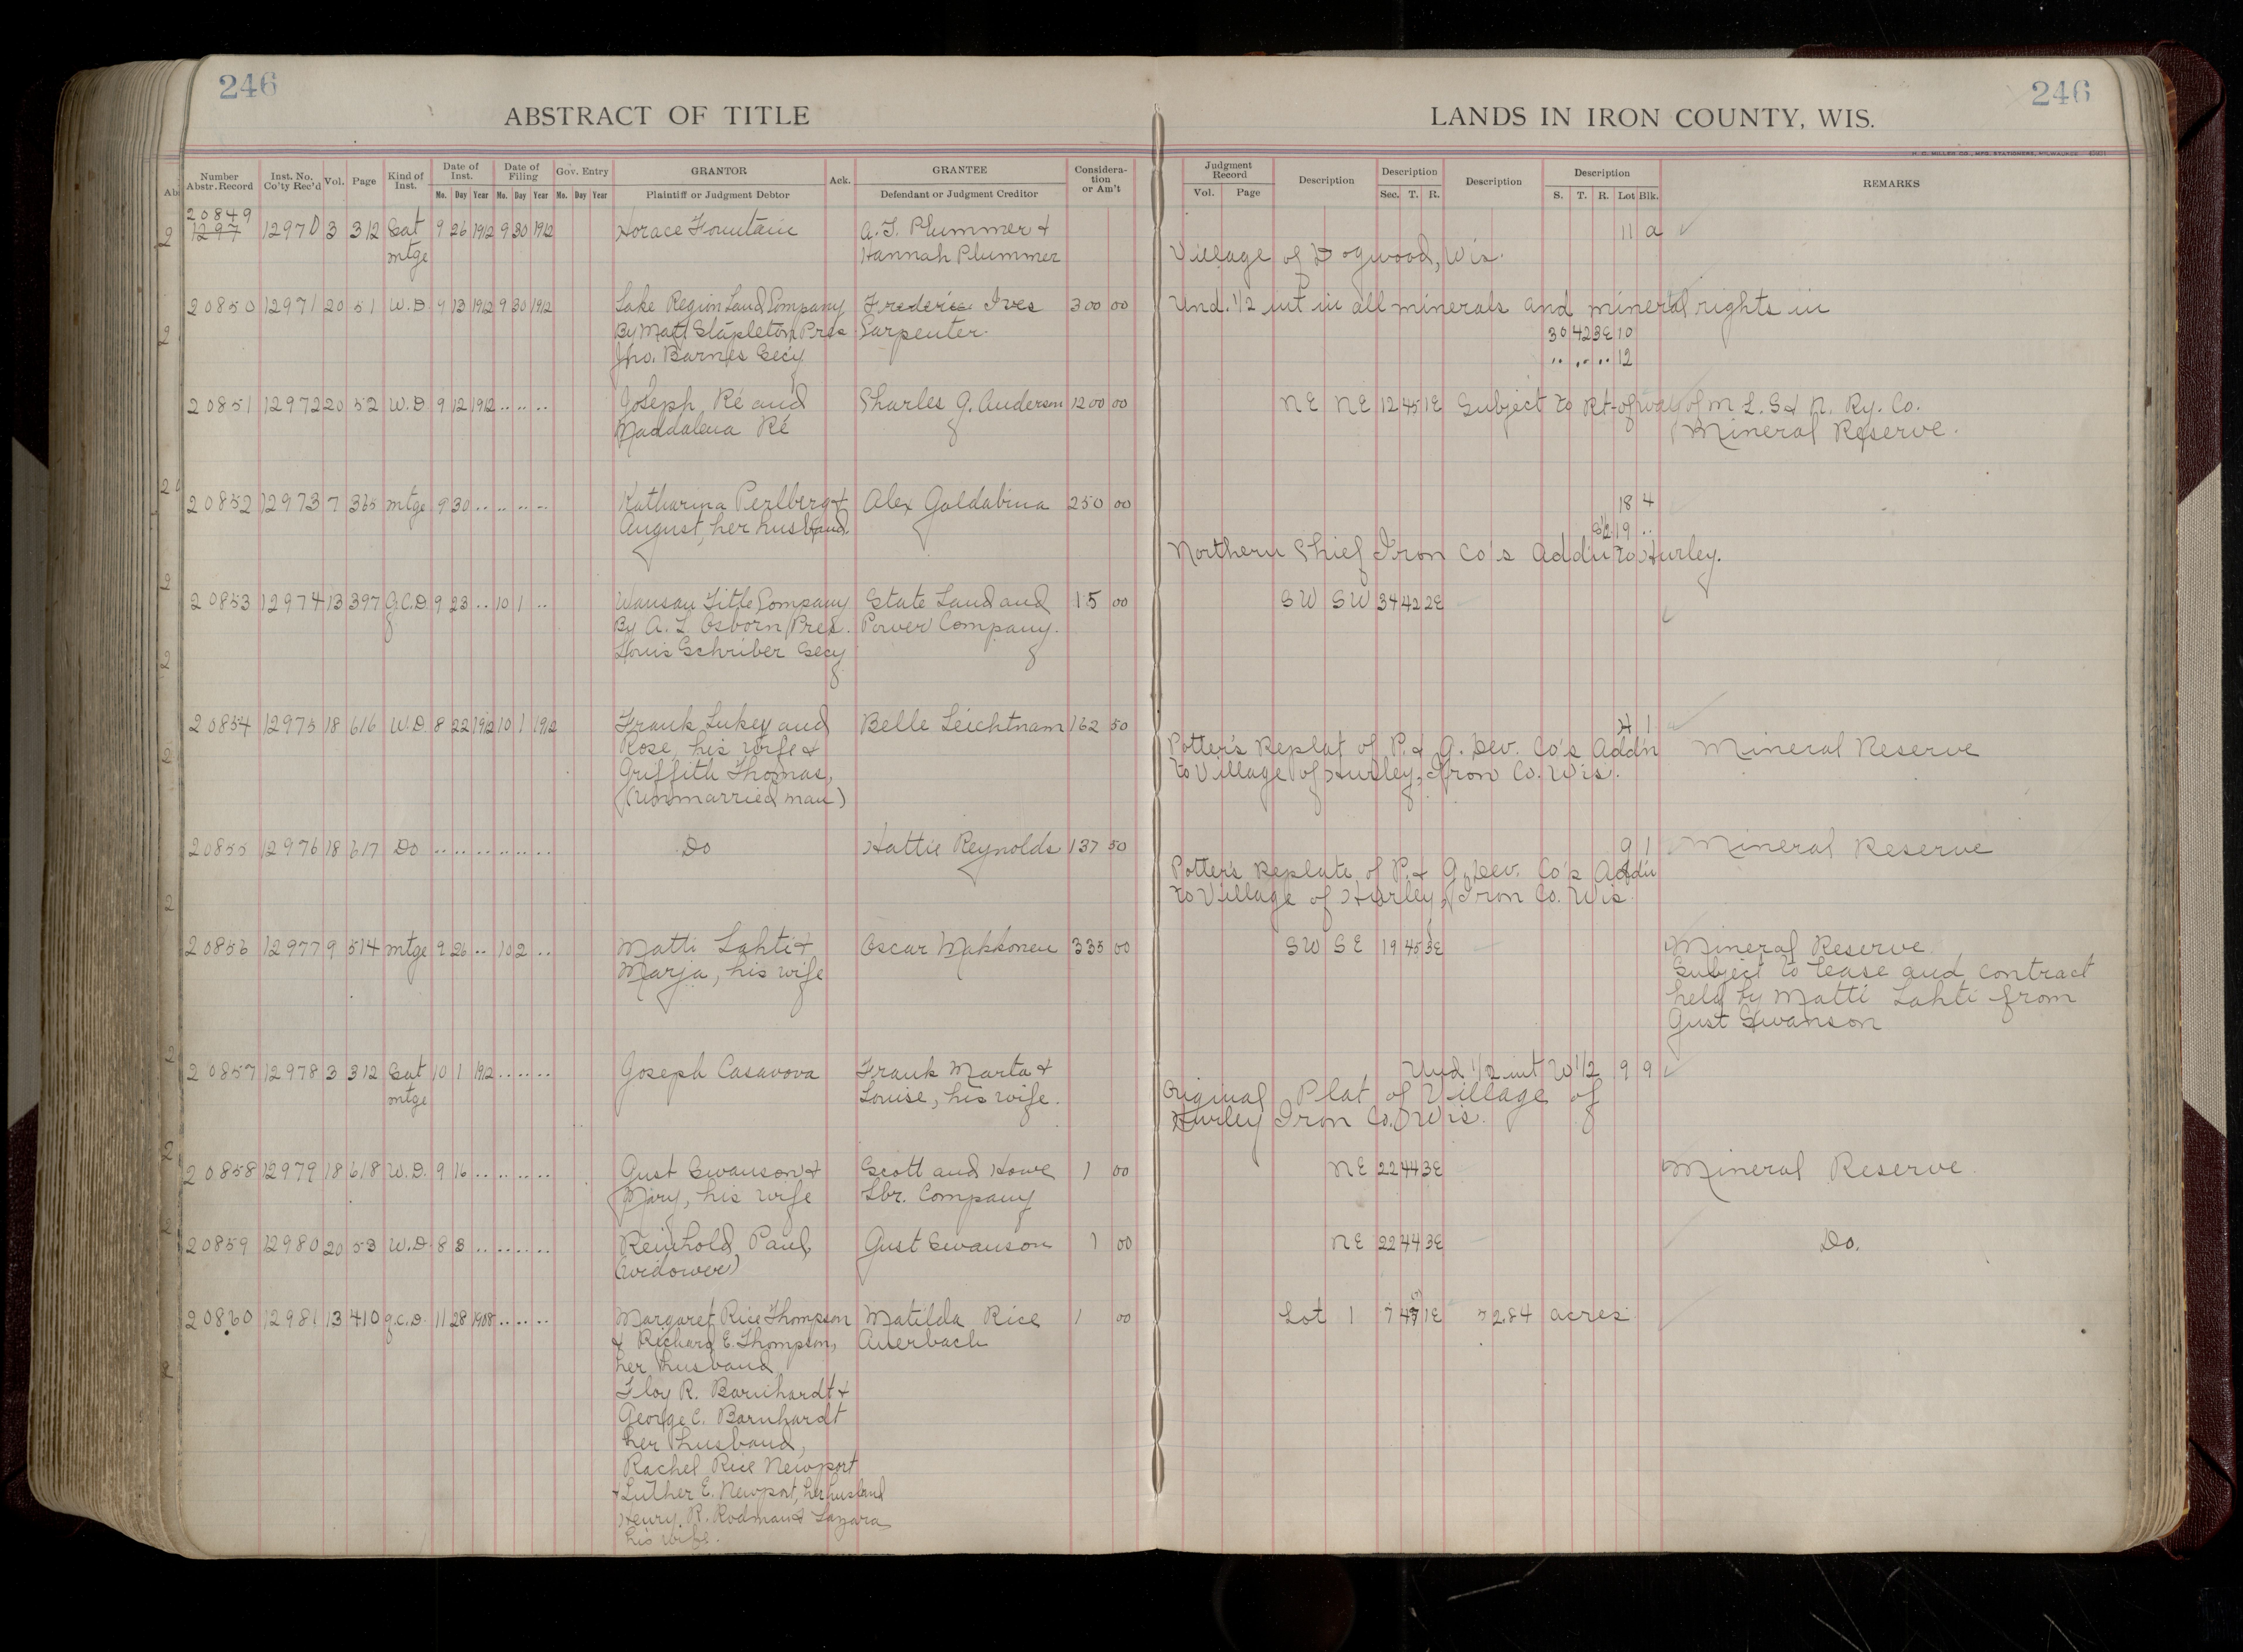 246
246
ABSTRACT OF TITLE
LANDS IN IRON COUNTY, WIS.
H. C. MILLER CO., MFG. STATIONERS, MILWAUKEE
Number Abstr. Record Inst. No. Co'ty Rec'd Vol. Page Kind of Inst. Date of Inst. Date of Filing Gov. Entry GRANTOR Ack. GRANTEE Considera-tion or Am't Judgment Record Description Description Description Description REMARKS
Mo. Day Year Mo. Day Year Mo. Day Year Plaintiff or Judgment Debtor Defendant or Judgment Creditor Vol. Page Sec. T. R. S. T. R. Lot Blk.
20849
1297 12970 3 312 Sat 9 26 1912 9 30 1912 Horace Fountain A. J. Plummer & 11 a
mtge Hannah Plummer Village of Dogwood, Wis.
20850 12971 20 51 W.D. 9 13 1912 9 30 1912 Lake Region Land Company Frederic Ives 300 00 Und. 1/2 int in all minerals and mineral rights in
By Matt Stapleton Pres Carpenter. 30 42 3E 10
Jno. Barnes Secy .. .. .. 12
20851 12972 20 52 W.D 9 12 1912 .. .. .. Joseph Ré and Charles G. Anderson 1200 00 NE NE 12 45 1E Subject to Rt-of way of M L. S & N. Ry. Co.
Maddalena Ré Mineral Reserve.
20852 12973 7 365 mtge 9 30 .. .. .. .. Katharina Perlberg & Alex Goldabina 250 00 18 4
August, her husband. S 1/2 19 ..
Northern Chief Iron Co's Addn to Hurley.
20853 12974 13 397 Q.C.D 9 23 .. 10 1 .. Wausau Title Company State Land and 15 00 SW SW 34 42 2E
By A. L. Osborn Pres. Power Company.
Louis Schriber Secy
20854 12975 18 616 W.D 8 22 1912 10 1 1912 Frank Lukey and Belle Leichtnam 162 50 1
Rose, his wife & Potter's Replat of P. & G. Dev. Co's Addn Mineral Reserve
Griffith Thomas, to Village of Hurley, Iron Co. Wis.
(unmarried man)
20855 12976 18 617 Do .. .. .. .. .. .. Do Hattie Reynolds 137 50 9 1 Mineral Reserve
Potter's Replate of P. & G. Dev. Co's Addn
to Village of Hurley, Iron Co. Wis.
20856 12977 9 514 mtge 9 26 .. 10 2 .. Matti Lahti & Oscar Makkonen 335 00 SW SE 19 45 3E Mineral Reserve
Marja, his wife Subject to lease and contract
held by Matti Lahti from
Gust Swanson
20857 12978 3 312 Sat 10 1 1912 .. .. .. Joseph Casavova Frank Marta & Und 1/2 int W 1/2 9 9
mtge Louise, his wife. Original Plat of Village of
Hurley Iron Co. Wis.
20858 12979 18 618 W.D. 9 16 .. .. .. .. Gust Swanson & Scott and Howe 1 00 NE 22 44 3E Mineral Reserve
Mary, his wife Lbr. Company
20859 12980 20 53 W.D 8 3 .. .. .. .. Reinhold Paul, Gust Swanson 1 00 NE 22 44 3E Do.
(widower)
20860 12981 13 410 Q.C.D. 11 28 1908 .. .. .. Margaret Rice Thompson Matilda Rice 1 00 Lot 1 7 1E 72.84 acres
& Richard E. Thompson, Auerbach
her husband
Floy R. Barnhardt &
George C. Barnhardt
her husband,
Rachel Rice Newport
& Luther E. Newport, her husband
Henry R. Rodman &
his wife.